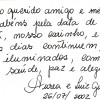 o querido amigo e me
abéns pela data de
, nosso carinho, e
s dias continuem
iluminados, com
saúde, paz e aleg
Aurea e Luiz
26/07/2002